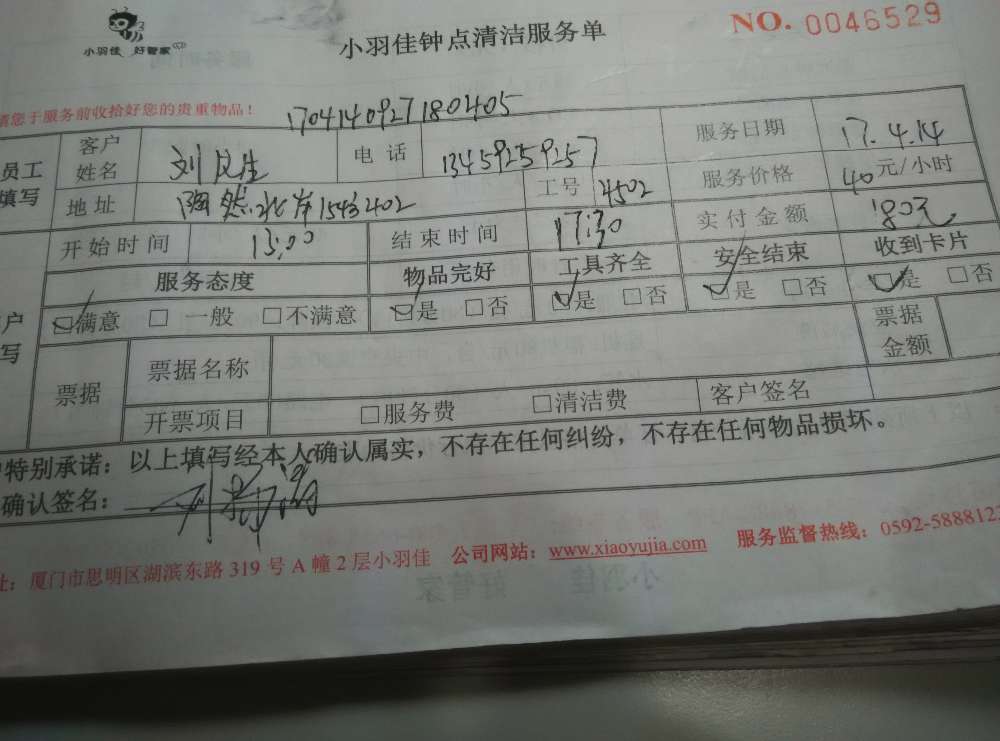 小羽佳 好管家
小羽佳钟点清洁服务单
NO. 0046529
请您于服务前收拾好您的贵重物品!
170414092718 0405
员工填写 客户姓名 刘 生 电话 13459259257 服务日期 17.4.14
地址 然北岸1543402 工号 4502 服务价格 40元/小时
开始时间 13:00 结束时间 17:30 实付金额 180元
服务态度 物品完好 工具齐全 安全结束 收到卡片
☑满意 □一般 □不满意 ☑是 □否 ☑是 □否 ☑是 □否 ☑是 □否
户 写
票据 票据名称 票据金额
开票项目 □服务费 □清洁费 客户签名
特别承诺:以上填写经本人确认属实,不存在任何纠纷,不存在任何物品损坏。
确认签名:
址:厦门市思明区湖滨东路319号A幢2层小羽佳 公司网站:www.xiaoyujia.com 服务监督热线:0592-5888123